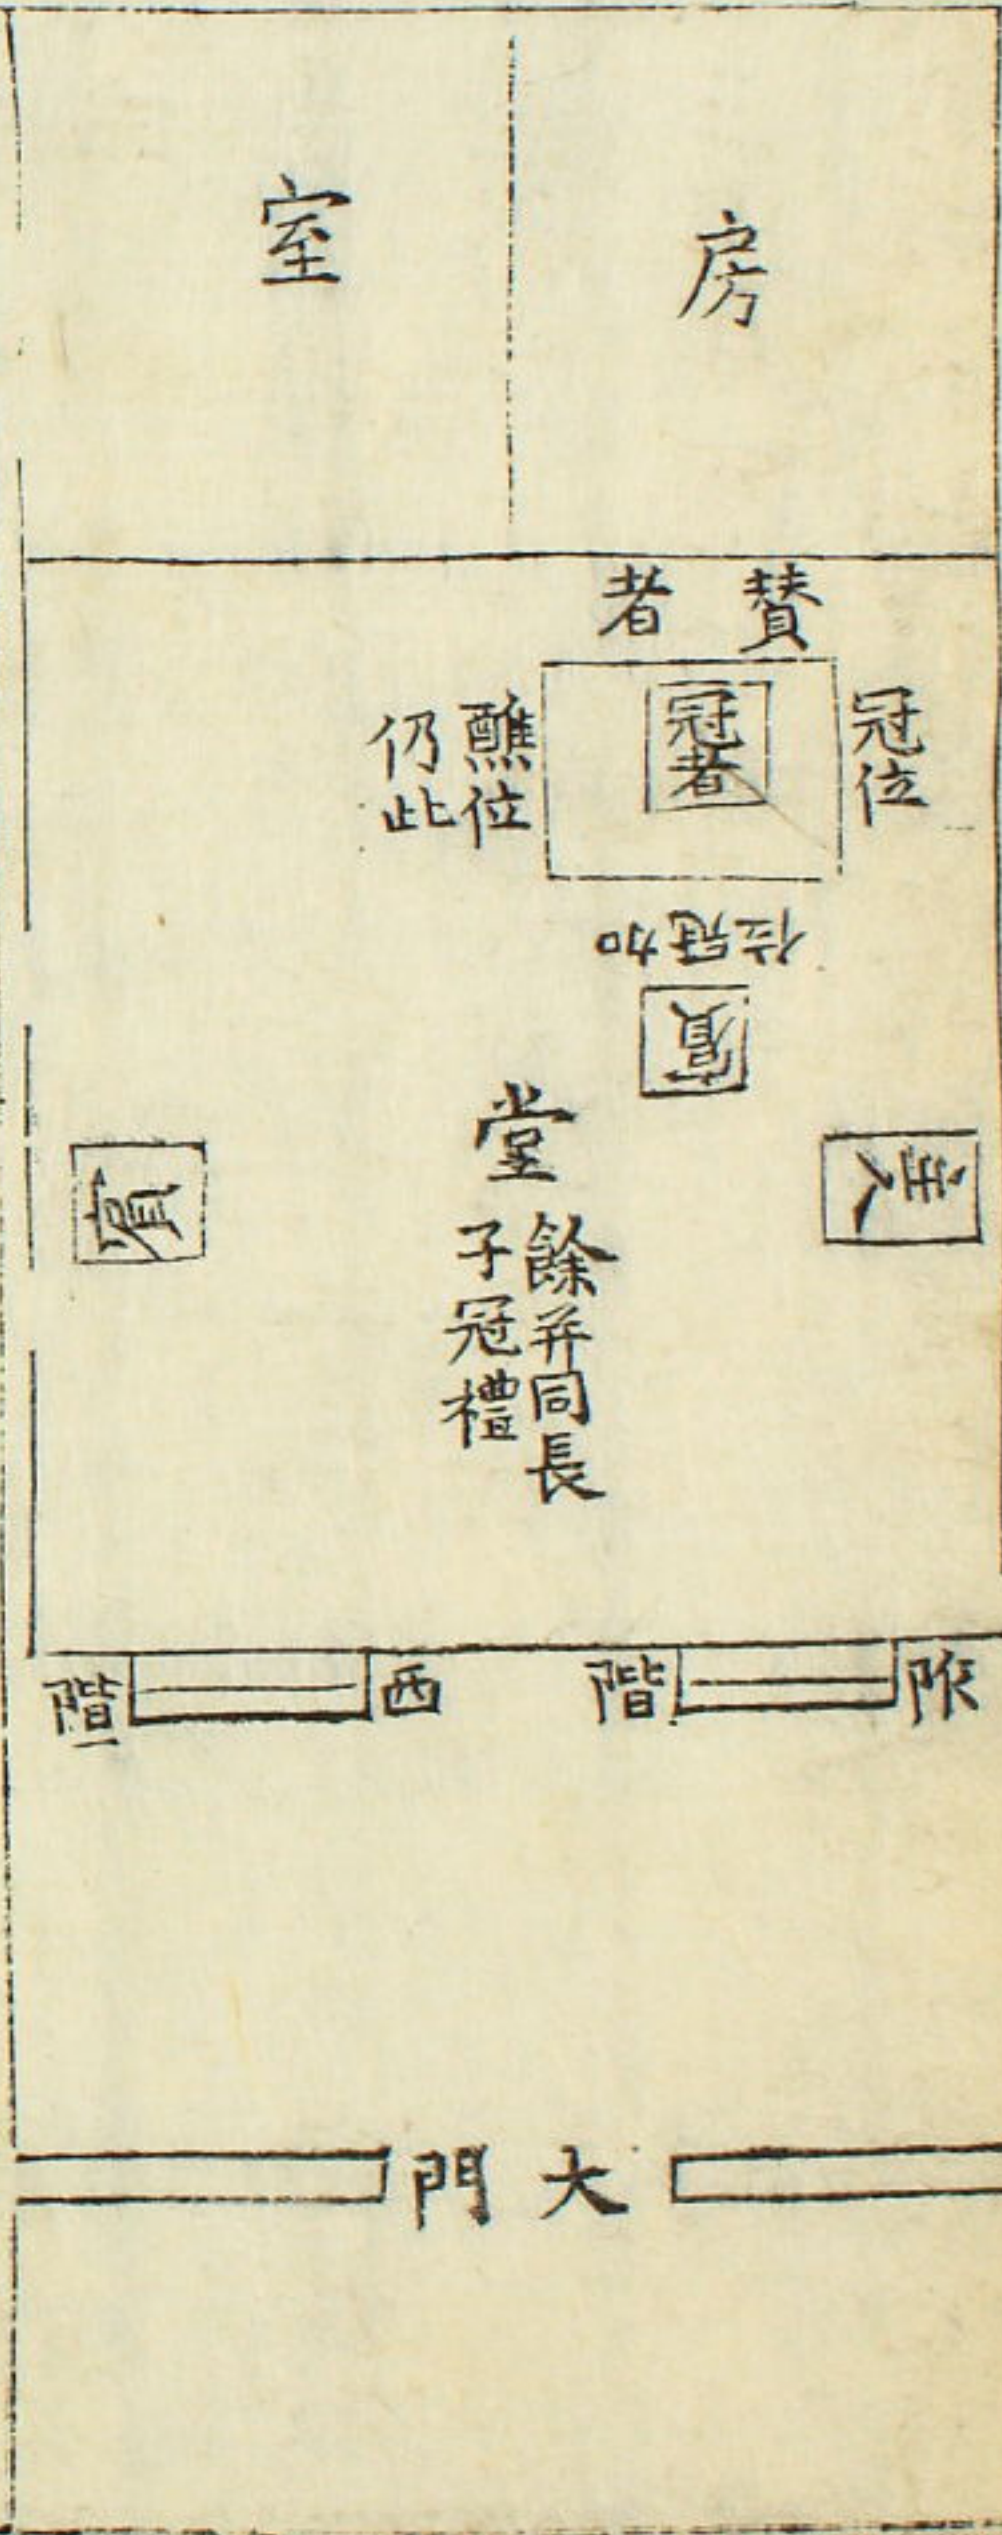 房
室
贊者
冠位
冠者
醮位
仍此
加冠位
賓
主人
賓
堂
餘并同長
子冠禮
阼階
西階
大門